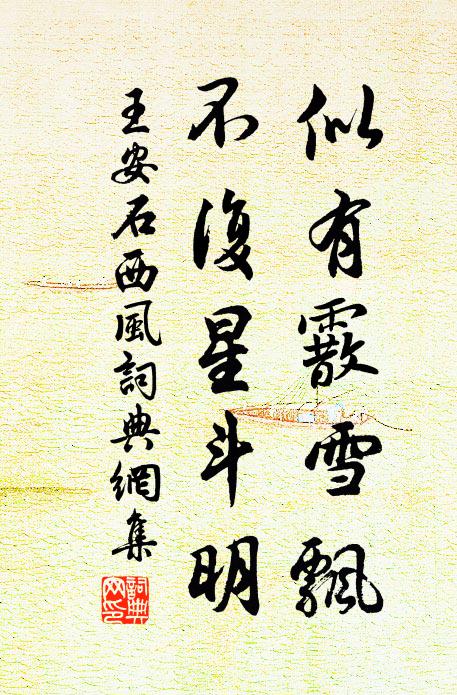 似有霰雪飄
不復星斗明
王安石西風詞典網集
詞典
网印